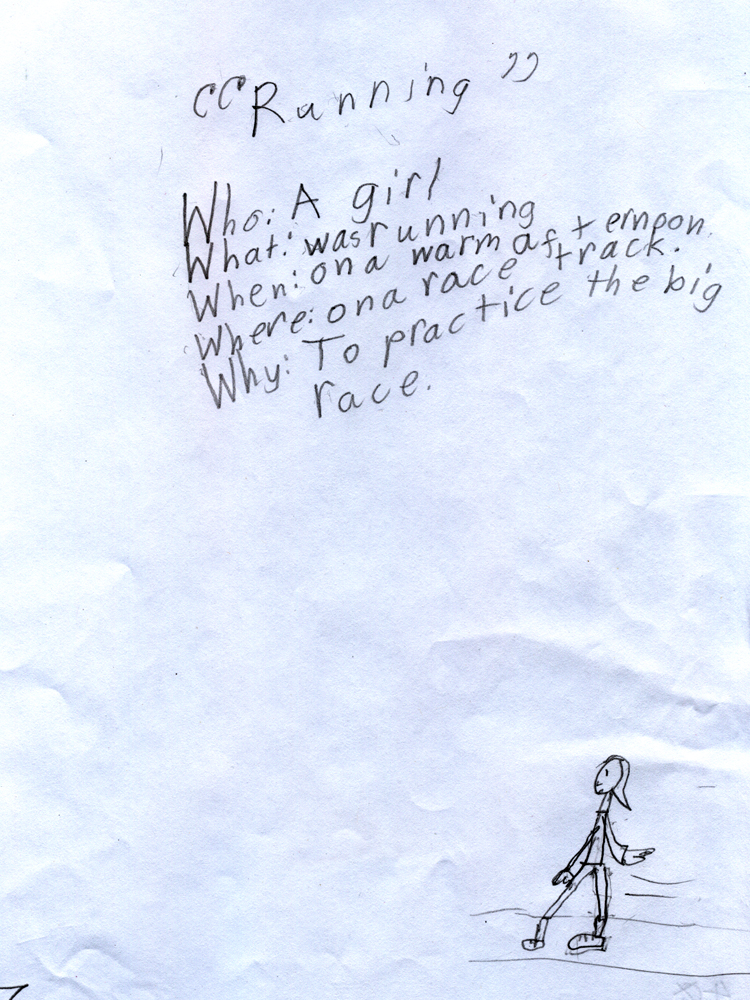 "Running"
Who: A girl
What: was running
When: on a warm afternoon.
Where: on a race track.
Why: To practice the big
race.